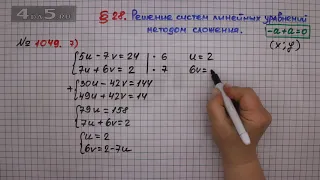 4ᵃ5.ru
§ 28. Решение систем линейных уравнений
методом сложения.
-a+a=0
№ 1049. 7)
(x;y)
5u-7v=24 | ·6
7u+6v=2 | ·7
u=2
6v=
+ 30u-42v=144
49u+42v=14
79u=158
7u+6v=2
u=2
6v=2-7u